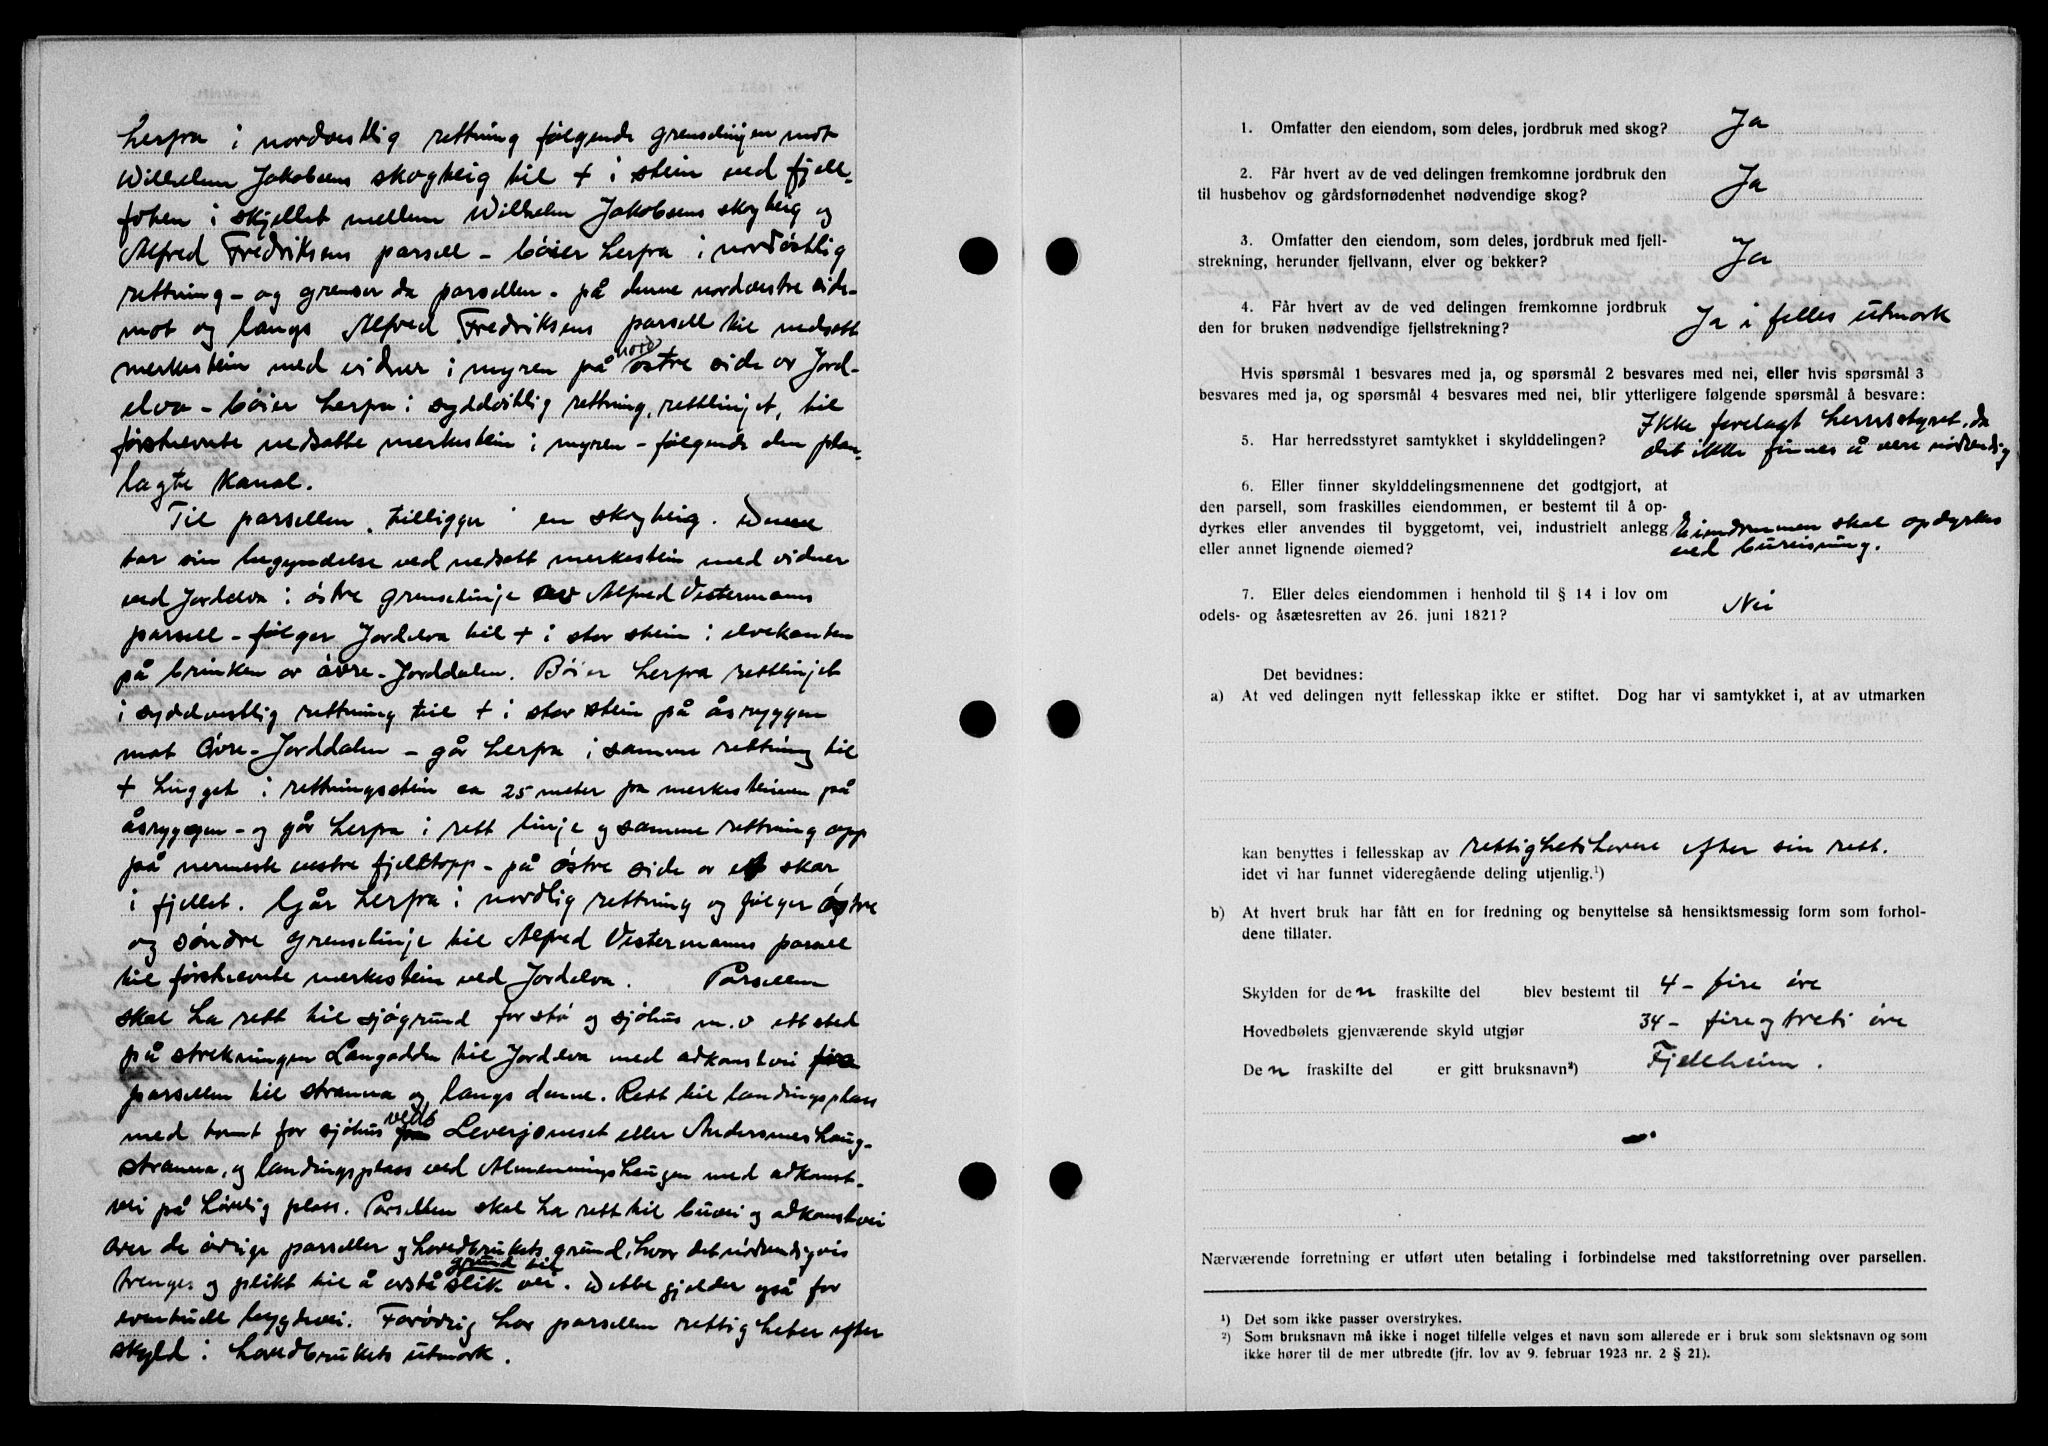 herfra i nordvestlig rettning følgende grenselinjen mot
Wilhelm Jakobsens skogteig til + i stein ved fjell-
foten i skjellet mellem Wilhelm Jakobsens skogteig og
Alfred Fredriksens parsell - bøier herfra i nordøstlig
rettning - og grenser da parsellen - på denne nordvestre side -
mot og langs Alfred Fredriksens parsell til nedsatt
merkestein med vidner i myren på nordøstre side av Jord-
elva - bøier herfra i syddøstlig rettning, rettlinjet, til
førstnevnte nedsatte merkestein i myren - følgende den plan-
lagte kanal.
Til parsellen tilligger en skogteig. Denne
tar sin begyndelse ved nedsatt merkestein med vidner
ved Jordelva i østre grenselinje av Alfred Vestermanns
parsell - følger Jordelva til + i stor stein i elvekanten
på brinken av øvre-Jorddalen. Bøier herfra rettlinjet
i syddvestlig rettning til + i stor stein på åsryggen
mot Øvre-Jorddalen - går herfra i samme rettning til
+ hugget i rettningsstein ca 25 meter fra merkesteinen på
åsryggen - og går herfra i rett linje og samme rettning opp
på nermeste vestre fjelltopp - på østre side av et skar
i fjellet. Går herfra i nordlig rettning og følger østre
og søndre grenselinje til Alfred Vestermanns parsell
til førstnevnte merkestein ved Jordelva. Parsellen
skal ha rett til sjøgrund for stø og sjøhus m.v ett sted
på strekningen Langodden til Jordelva med adkomstvei fra
parsellen til stranna og langs denne. Rett til landingsplass
med tomt for sjøhus ved Leverjoneset eller Andersneshaug-
stranna, og landingsplass ved Almenningshaugen med adkomst-
vei på høvelig plass. Parsellen skal ha rett til buvei og adkomstvei
over de øvrige parseller og hovedbrukets grund, hvor det nødvendigvis
trenges og plikt til å avstå grund til slik vei. Dette gjelder også for
eventuell bygdevei. Forøvrig har parsellen rettigheter efter
skyld i hovedbrukets utmark.
1. Omfatter den eiendom, som deles, jordbruk med skog? Ja
2. Får hvert av de ved delingen fremkomne jordbruk den
til husbehov og gårdsfornødenhet nødvendige skog? Ja
3. Omfatter den eiendom, som deles, jordbruk med fjell-
strekning, herunder fjellvann, elver og bekker? Ja
4. Får hvert av de ved delingen fremkomne jordbruk
den for bruken nødvendige fjellstrekning? Ja i felles utmark
Hvis spørsmål 1 besvares med ja, og spørsmål 2 besvares med nei, eller hvis spørsmål 3
besvares med ja, og spørsmål 4 besvares med nei, blir ytterligere følgende spørsmål å besvare:
5. Har herredsstyret samtykket i skylddelingen? Ikke forelagt herrsstyret, da
det ikke finnes å være nødvendig
6. Eller finner skylddelingsmennene det godtgjort, at
den parsell, som fraskilles eiendommen, er bestemt til å op-
dyrkes eller anvendes til byggetomt, vei, industrielt anlegg
eller annet lignende øiemed? Eiendommen skal opdyrkes
ved bureisning.
7. Eller deles eiendommen i henhold til § 14 i lov om
odels- og åsætesretten av 26. juni 1821? Nei
Det bevidnes:
a) At ved delingen nytt fellesskap ikke er stiftet. Dog har vi samtykket i, at av utmarken
kan benyttes i fellesskap av rettighetshavere efter sin rett.
idet vi har funnet videregående deling utjenlig.¹)
b) At hvert bruk har fått en for fredning og benyttelse så hensiktsmessig form som forhol-
dene tillater.
Skylden for den fraskilte del blev bestemt til 4 - fire øre
Hovedbølets gjenværende skyld utgjør 34 - fire og treti øre
Den fraskilte del er gitt bruksnavn²) Fjellheim.
Nærværende forretning er utført uten betaling i forbindelse med takstforretning over parsellen.
¹) Det som ikke passer overstrykes.
²) Som bruksnavn må ikke i noget tilfelle velges et navn som allerede er i bruk som slektsnavn og som
ikke hører til de mer utbredte (jfr. lov av 9. februar 1923 nr. 2 § 21).